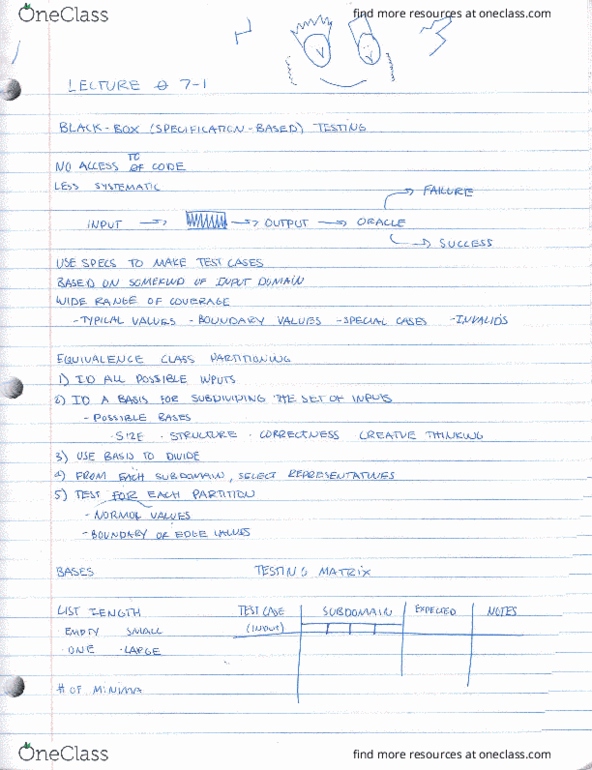 OneClass
find more resources at oneclass.com
LECTURE # 7-1
BLACK-BOX (SPECIFICATION-BASED) TESTING
TO
NO ACCESS OF CODE
LESS SYSTEMATIC
FAILURE
INPUT → → OUTPUT → ORACLE
→ SUCCESS
USE SPECS TO MAKE TEST CASES
BASED ON SOMEKIND OF INPUT DOMAIN
WIDE RANGE OF COVERAGE
-TYPICAL VALUES -BOUNDARY VALUES -SPECIAL CASES -INVALIDS
EQUIVALENCE CLASS PARTITIONING
1) ID ALL POSSIBLE INPUTS
2) ID A BASIS FOR SUBDIVIDING THE SET OF INPUTS
- POSSIBLE BASES
· SIZE · STRUCTURE · CORRECTNESS CREATIVE THINKING
3) USE BASIS TO DIVIDE
4) FROM EACH SUBDOMAIN, SELECT REPRESENTATIVES
5) TEST FOR EACH PARTITION
- NORMAL VALUES
- BOUNDARY OF EDGE VALUES
BASES TESTING MATRIX
LIST LENGTH TEST CASE SUBDOMAIN EXPECTED NOTES
· EMPTY SMALL (INPUT)
· ONE · LARGE
# OF MINIMA
OneClass
find more resources at oneclass.com